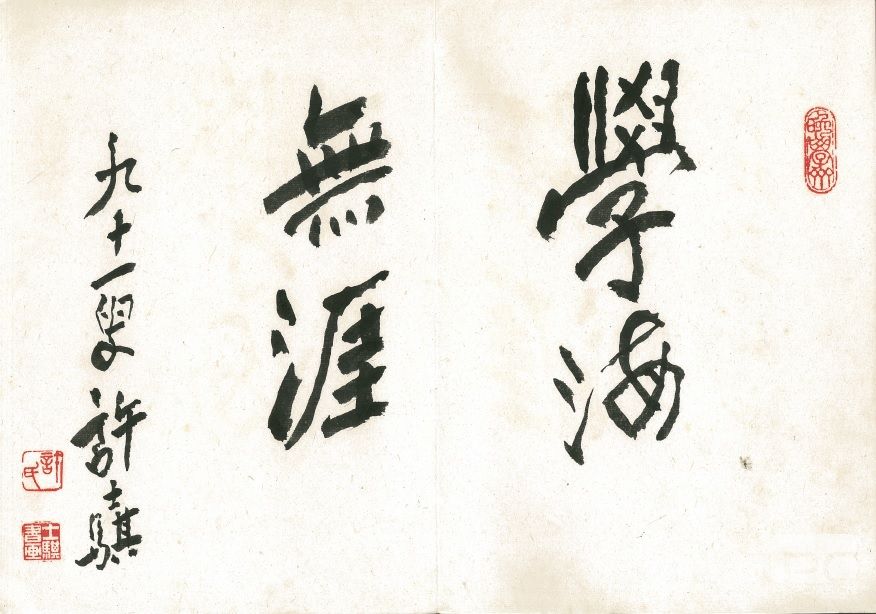 學海
無涯
九十一叟許士騏
許氏
士騏書畫